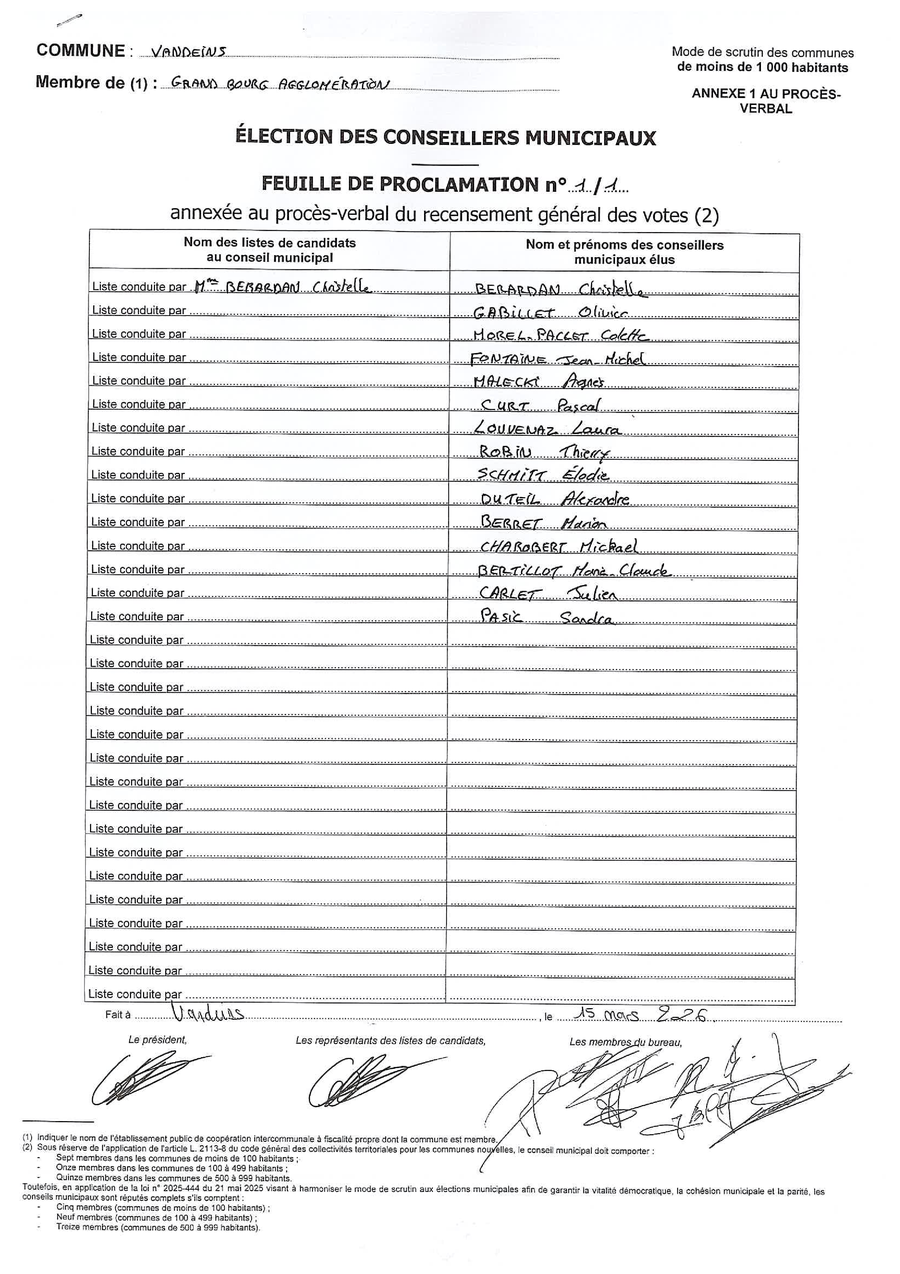 COMMUNE : VANDEINS
Mode de scrutin des communes
de moins de 1 000 habitants
Membre de (1) : GRAND BOURG AGGLOMÉRATION
ANNEXE 1 AU PROCÈS-
VERBAL
ÉLECTION DES CONSEILLERS MUNICIPAUX
FEUILLE DE PROCLAMATION n° 1/1
annexée au procès-verbal du recensement général des votes (2)
Nom des listes de candidats
au conseil municipal
Nom et prénoms des conseillers
municipaux élus
Liste conduite par Mme BERARDAN Christelle BERARDAN Christelle
Liste conduite par GABILLET Olivier
Liste conduite par MOREL-PACLET Colette
Liste conduite par FONTAINE Jean-Michel
Liste conduite par MALECKI Agnès
Liste conduite par CURT Pascal
Liste conduite par LOUVENAZ Laura
Liste conduite par ROBIN Thierry
Liste conduite par SCHMITT Élodie
Liste conduite par DUTEIL Alexandre
Liste conduite par BERRET Marion
Liste conduite par CHAROBERT Mickael
Liste conduite par BERTILLOT Marie-Claude
Liste conduite par CARLET Julien
Liste conduite par PASIC Sandra
Liste conduite par
Liste conduite par
Liste conduite par
Liste conduite par
Liste conduite par
Liste conduite par
Liste conduite par
Liste conduite par
Liste conduite par
Liste conduite par
Liste conduite par
Liste conduite par
Liste conduite par
Liste conduite par
Liste conduite par
Liste conduite par
Fait à Vandeins , le 15 mars 2026
Le président,
Les représentants des listes de candidats,
Les membres du bureau,
(1) Indiquer le nom de l'établissement public de coopération intercommunale à fiscalité propre dont la commune est membre.
(2) Sous réserve de l'application de l'article L. 2113-8 du code général des collectivités territoriales pour les communes nouvelles, le conseil municipal doit comporter :
- Sept membres dans les communes de moins de 100 habitants ;
- Onze membres dans les communes de 100 à 499 habitants ;
- Quinze membres dans les communes de 500 à 999 habitants.
Toutefois, en application de la loi n° 2025-444 du 21 mai 2025 visant à harmoniser le mode de scrutin aux élections municipales afin de garantir la vitalité démocratique, la cohésion municipale et la parité, les
conseils municipaux sont réputés complets s'ils comptent :
- Cinq membres (communes de moins de 100 habitants) ;
- Neuf membres (communes de 100 à 499 habitants) ;
- Treize membres (communes de 500 à 999 habitants).